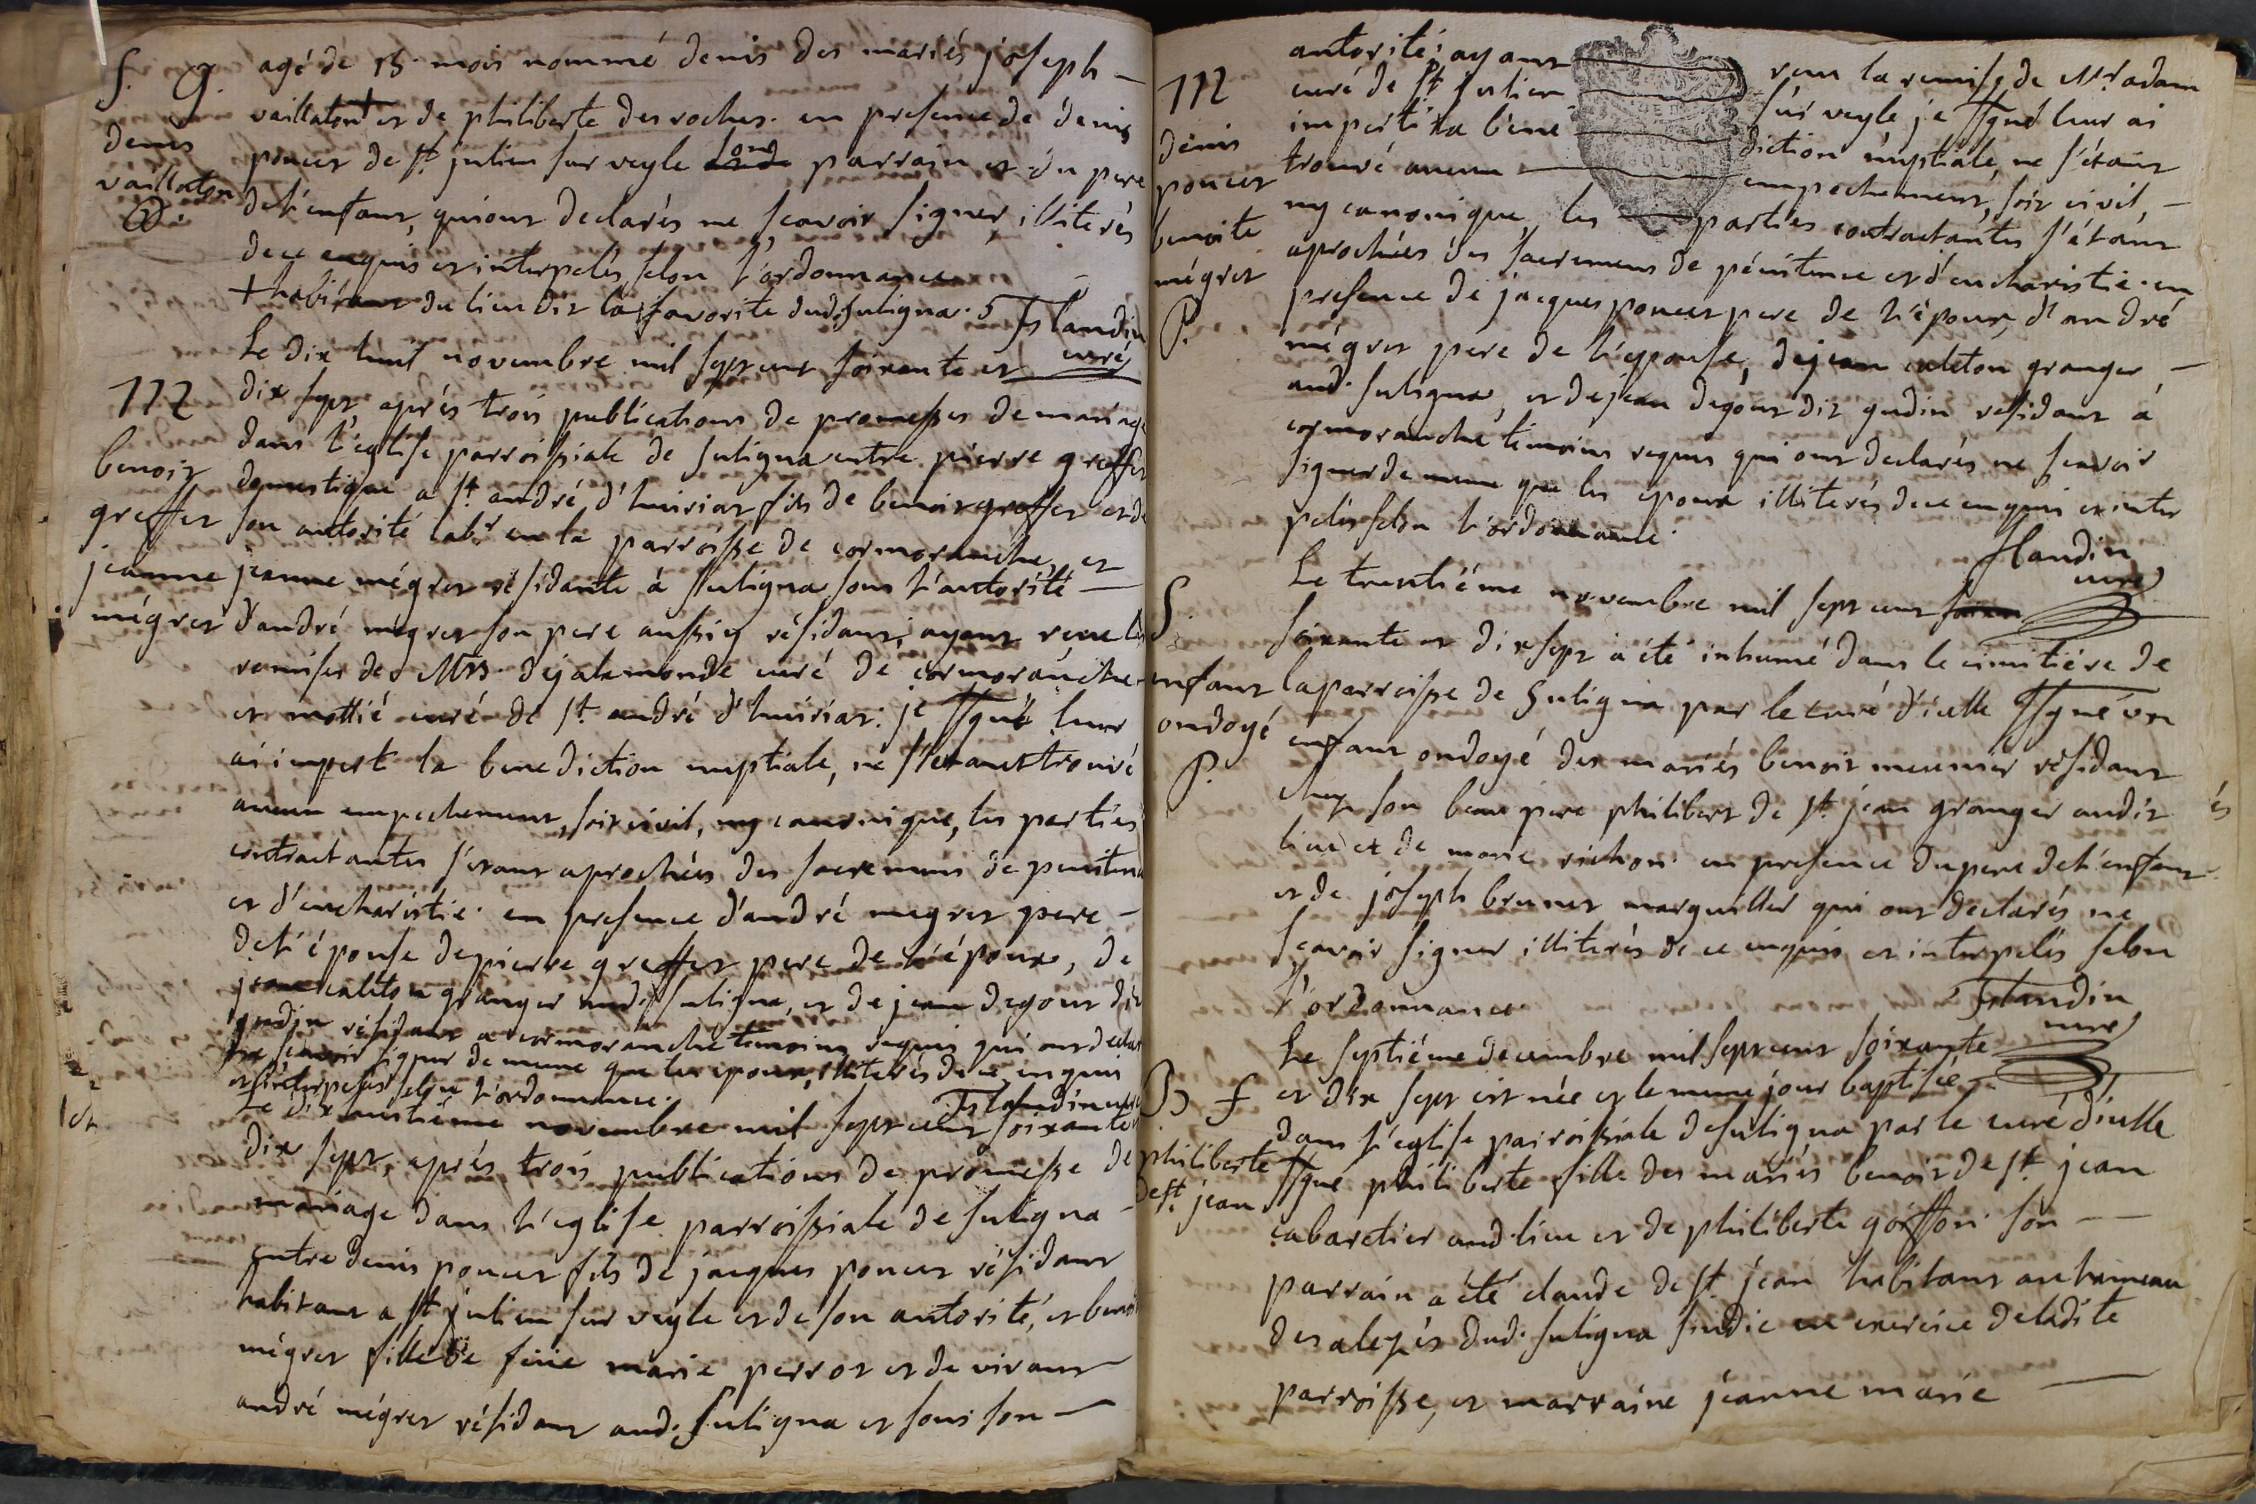 S. G. agé de 15 mois nommé denis des mariés joseph
denis vaillaton + et de philiberte desroches. en presence de denis
vaillaton poncet de st julien sur veyle son parrain et du pere
de l'enfant, qui ont declarés ne scavoir signer, illiterés
de ce enquis et interpelés selon l'ordonnance
+ habitant du lieu dit la favorite dud. suligna.
flandin curé
Le dix huit novembre mil sept cent soixante et
dix sept, aprés trois publications de promesses de mariage
dans l'eglise parroissiale de suligna entre pierre greffet
benoit domestique a st andré d'huiriat fils de benoit greffet et de
greffet son autorité labr en la parroisse de cormoranche, et
jeanne jeanne mégret résidante á suligna sous l'autorité
mégret d'andré mégret son pere aussi y résidant; ayant reçue les
remises de Mrs. dejalamonde curé de cormoranche
et mottié curé de st andré d'huiriat: je ssgné leur
ai imperti la benediction nuptiale, ne s'etant trouvé
aucun empechement, soit civil, ny canonique, les parties
contractantes s'etant aprochées des sacremens de penitence
et d'eucharistie. en presence d'andré megret pere
de l'épouse de pierre greffet pere de l'époux, de
jean caleton granger aud. suligna, et de jean degout dit
gudin résidant a cormoranche temoins requis qui ont declarés
ne scavoir signer de meme que les epoux, illiterés de ce enquis
et interpelés selon l'ordonnance.
flandin curé
Le dix huitième novembre mil sept cent soixante et
dix sept, aprés trois publications de promesse de
mariage dans l'eglise parroissiale de suligna
entre denis poncet fils de jacques poncet résidant
habitant a st julien sur veyle et de son autorité, et benoite
mégret fille de feüe marie perrot et de vivant
andré mégret résidant aud. suligna et sous son
autorité; ayant reçu la remise de Mr. adam
curé de st julien sur veyle je ssgné leur ai
denis imperti la bene diction nuptiale, ne s'étant
poncet trouvé aucun empechement, soit civil,
benoite ny canonique, les parties contractantes s'étant
mégret aprochées des sacremens de pénitence et d'eucharistie. en
P. presence de jacques poncet pere de l'époux, d'andré
mégret pere de l'epouse, de jean caleton granger
aud. suligna, et de jean degout dit gudin résidant á
cormoranche temoins requis qui ont declarés ne scavoir
signer de meme que les epoux illiterés de ce enquis et inter
pelés selon l'ordonnance.
flandin curé
S. Le trentiéme novembre mil sept cent
soixante et dix sept a été inhumé dans le cimitiére de
enfant la parroisse de Suligna par le curé d'icelle ssgné un
ondoyé enfant ondoyé des mariés benoit meunier résidant
P. chez son beau pere philibert de st jean granger audit
lieu et de marie richon. en presence du pere de l'enfant
et de joseph brunet marguiller qui ont declarés ne
scavoir signer illiterés de ce enquis et interpelés selon
l'ordonnance
flandin curé
Le septiéme decembre mil sept cent soixante
B f et dix sept est née et le meme jour baptisée
dans l'eglise parroissiale de suligna par le curé d'icelle
philiberte ssgné philiberte fille des mariés benoit de st jean
de st. jean cabaretier aud. lieu et de philiberte goiffon. son
parrain a été claude de st. jean habitant au hameau
des alezés dud. suligna sindic en exercice de ladite
parroisse, et marraine jeanne marie